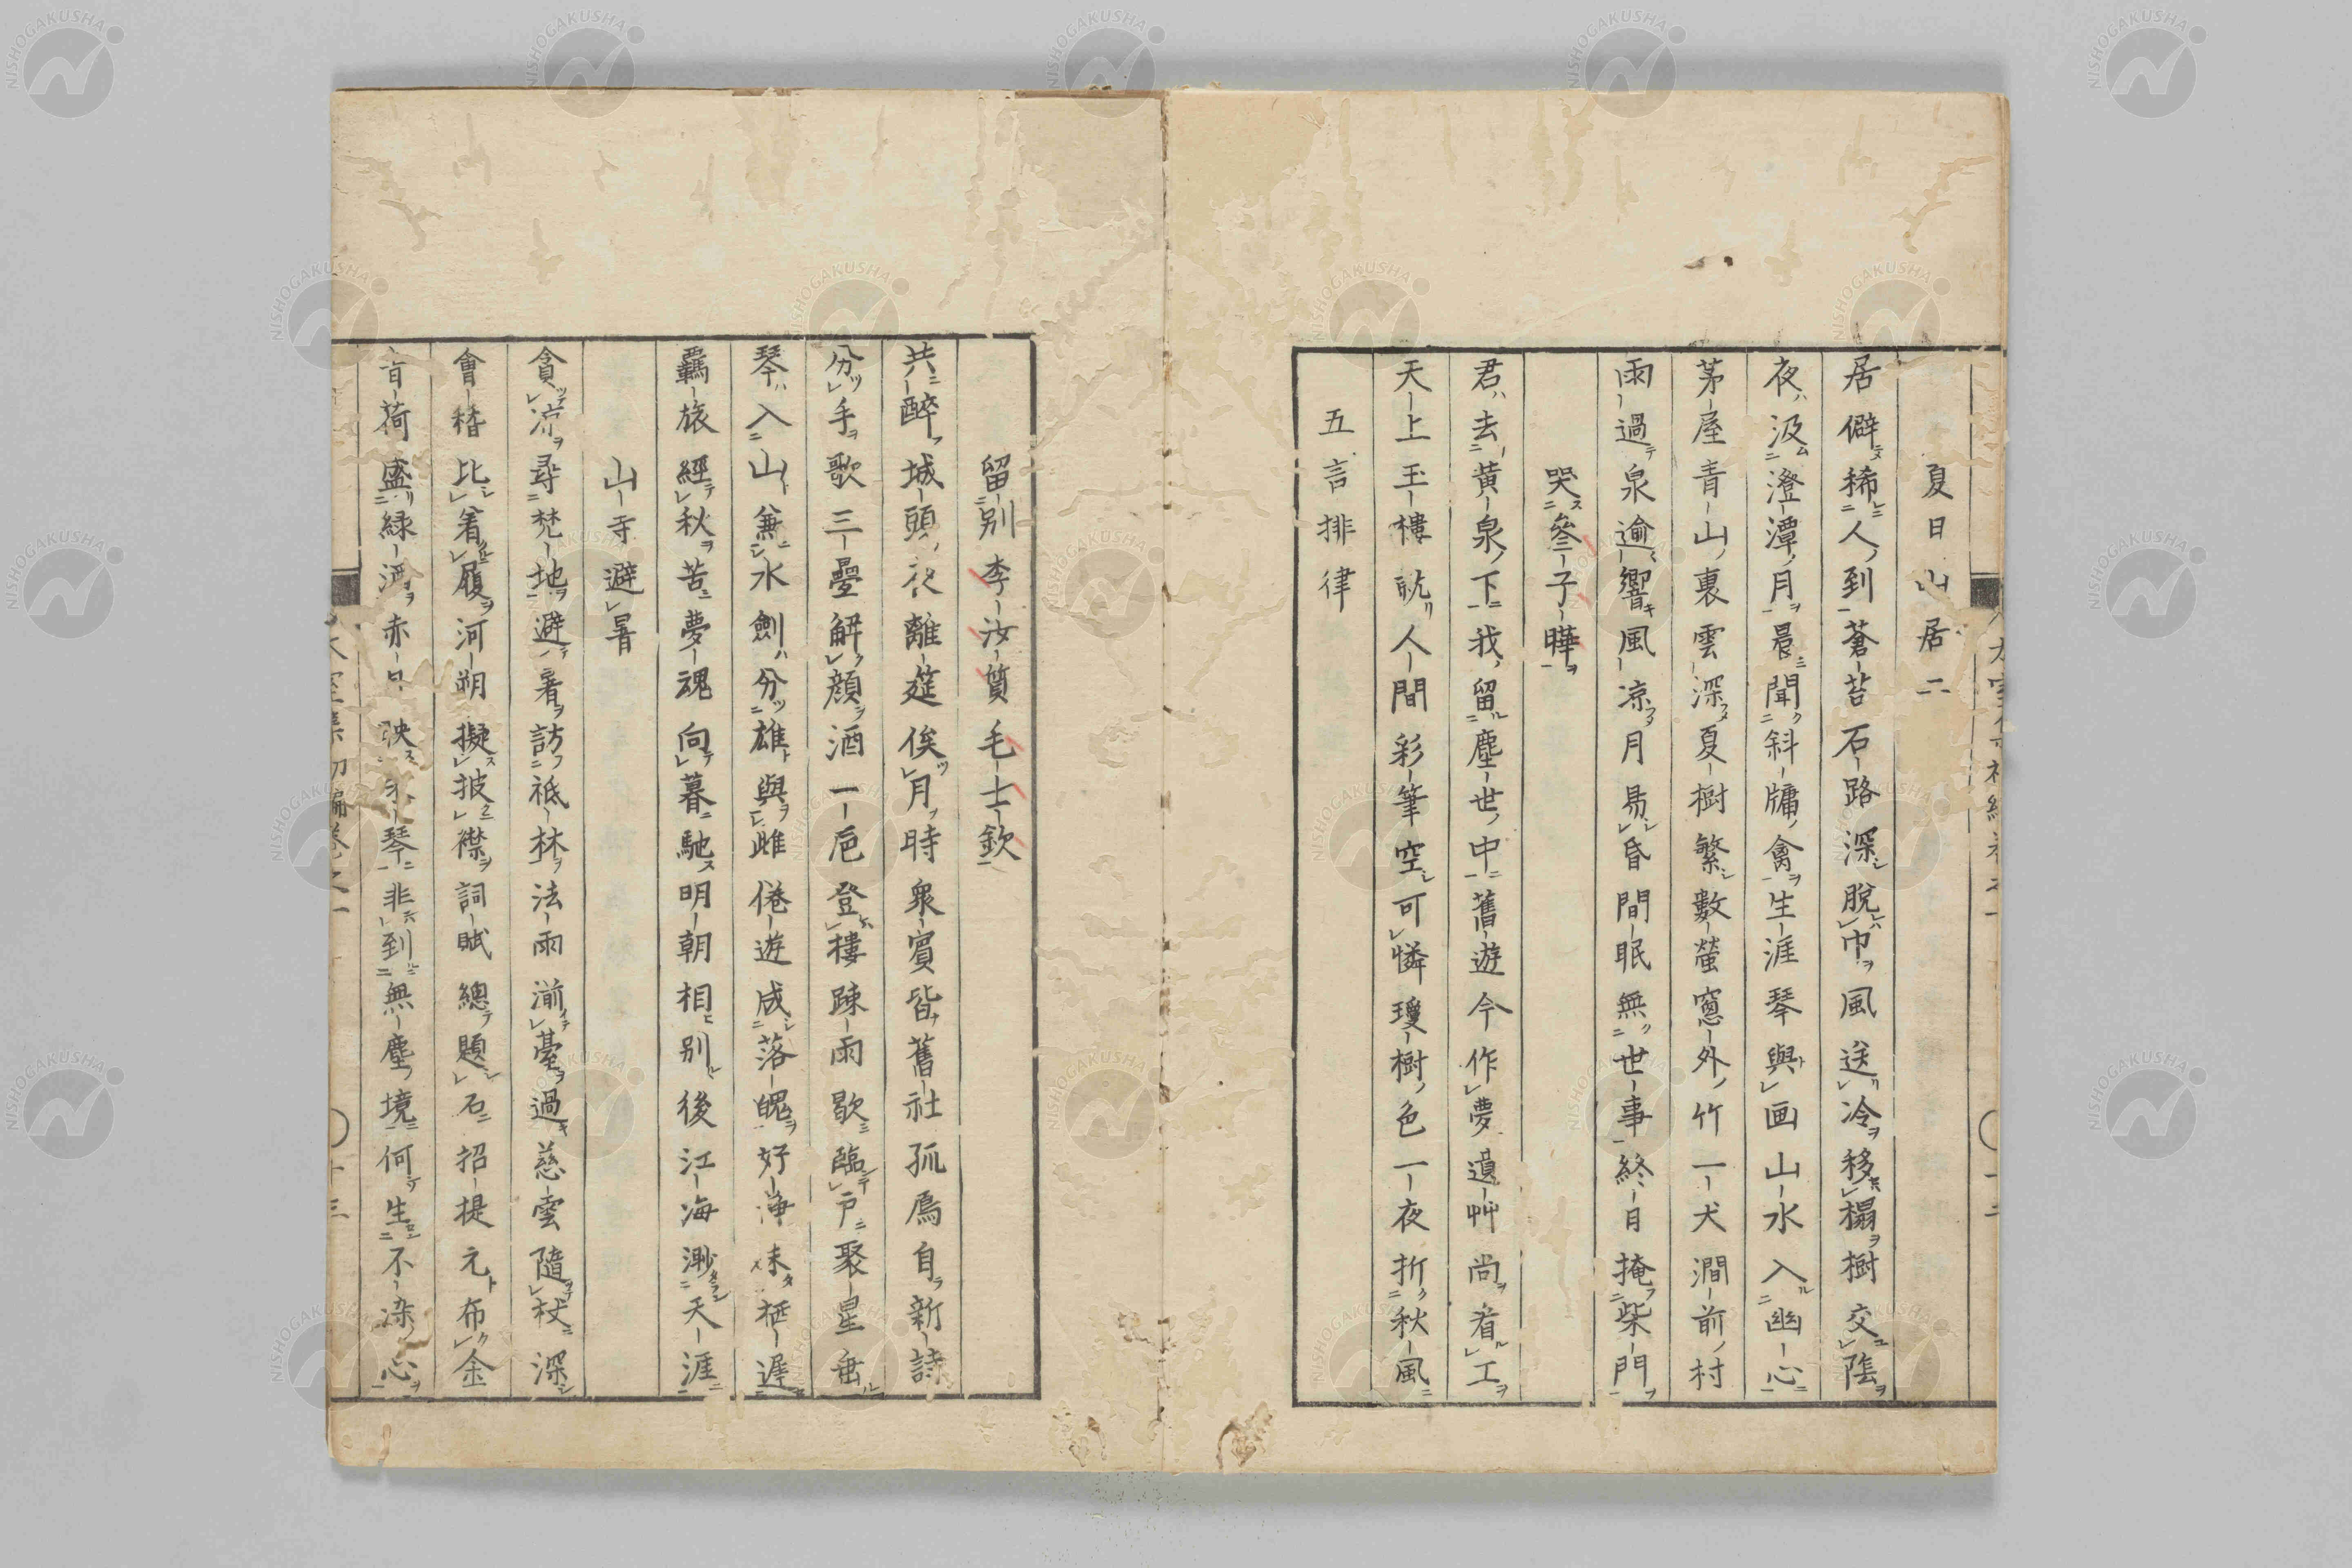 夏日山居二
居僻稀人到蒼苔石路深脫巾風送冷移榻樹交陰
夜汲澄潭月晨聞斜牗禽生涯琴與画山水入幽心
茅屋青山裏雲深夏樹繁數螢窓外竹一犬澗前村
雨過泉逾響風凉月易昏間眠無世事終日掩柴門
哭參子曄
君去黄泉下我留塵世中舊遊今作夢遺艸尚看工
天上玉樓就人間彩筆空可憐瓊樹色一夜折秋風
五言排律
留別李汝質毛士欽
共醉城頭夜離筵俟月時衆賓皆舊社孤鳥自新詩
分手歌三疊解顔酒一巵登樓疎雨歇臨戸聚星垂
琴入山兼水劍分雄與雌倦遊咸落魄好淨未栖遲
羈旅經秋苦夢魂向暮馳明朝相別後江海渺天涯
山寺避暑
貪凉尋梵地避暑訪祇林法雨湔臺過慈雲隨杖深
會稽比着履河朔擬披襟詞賦總題石招提元布金
荷盛綠 赤 映 琴非到無塵境何生不染心
初編卷之一
十三
NISHOGAKUSHA